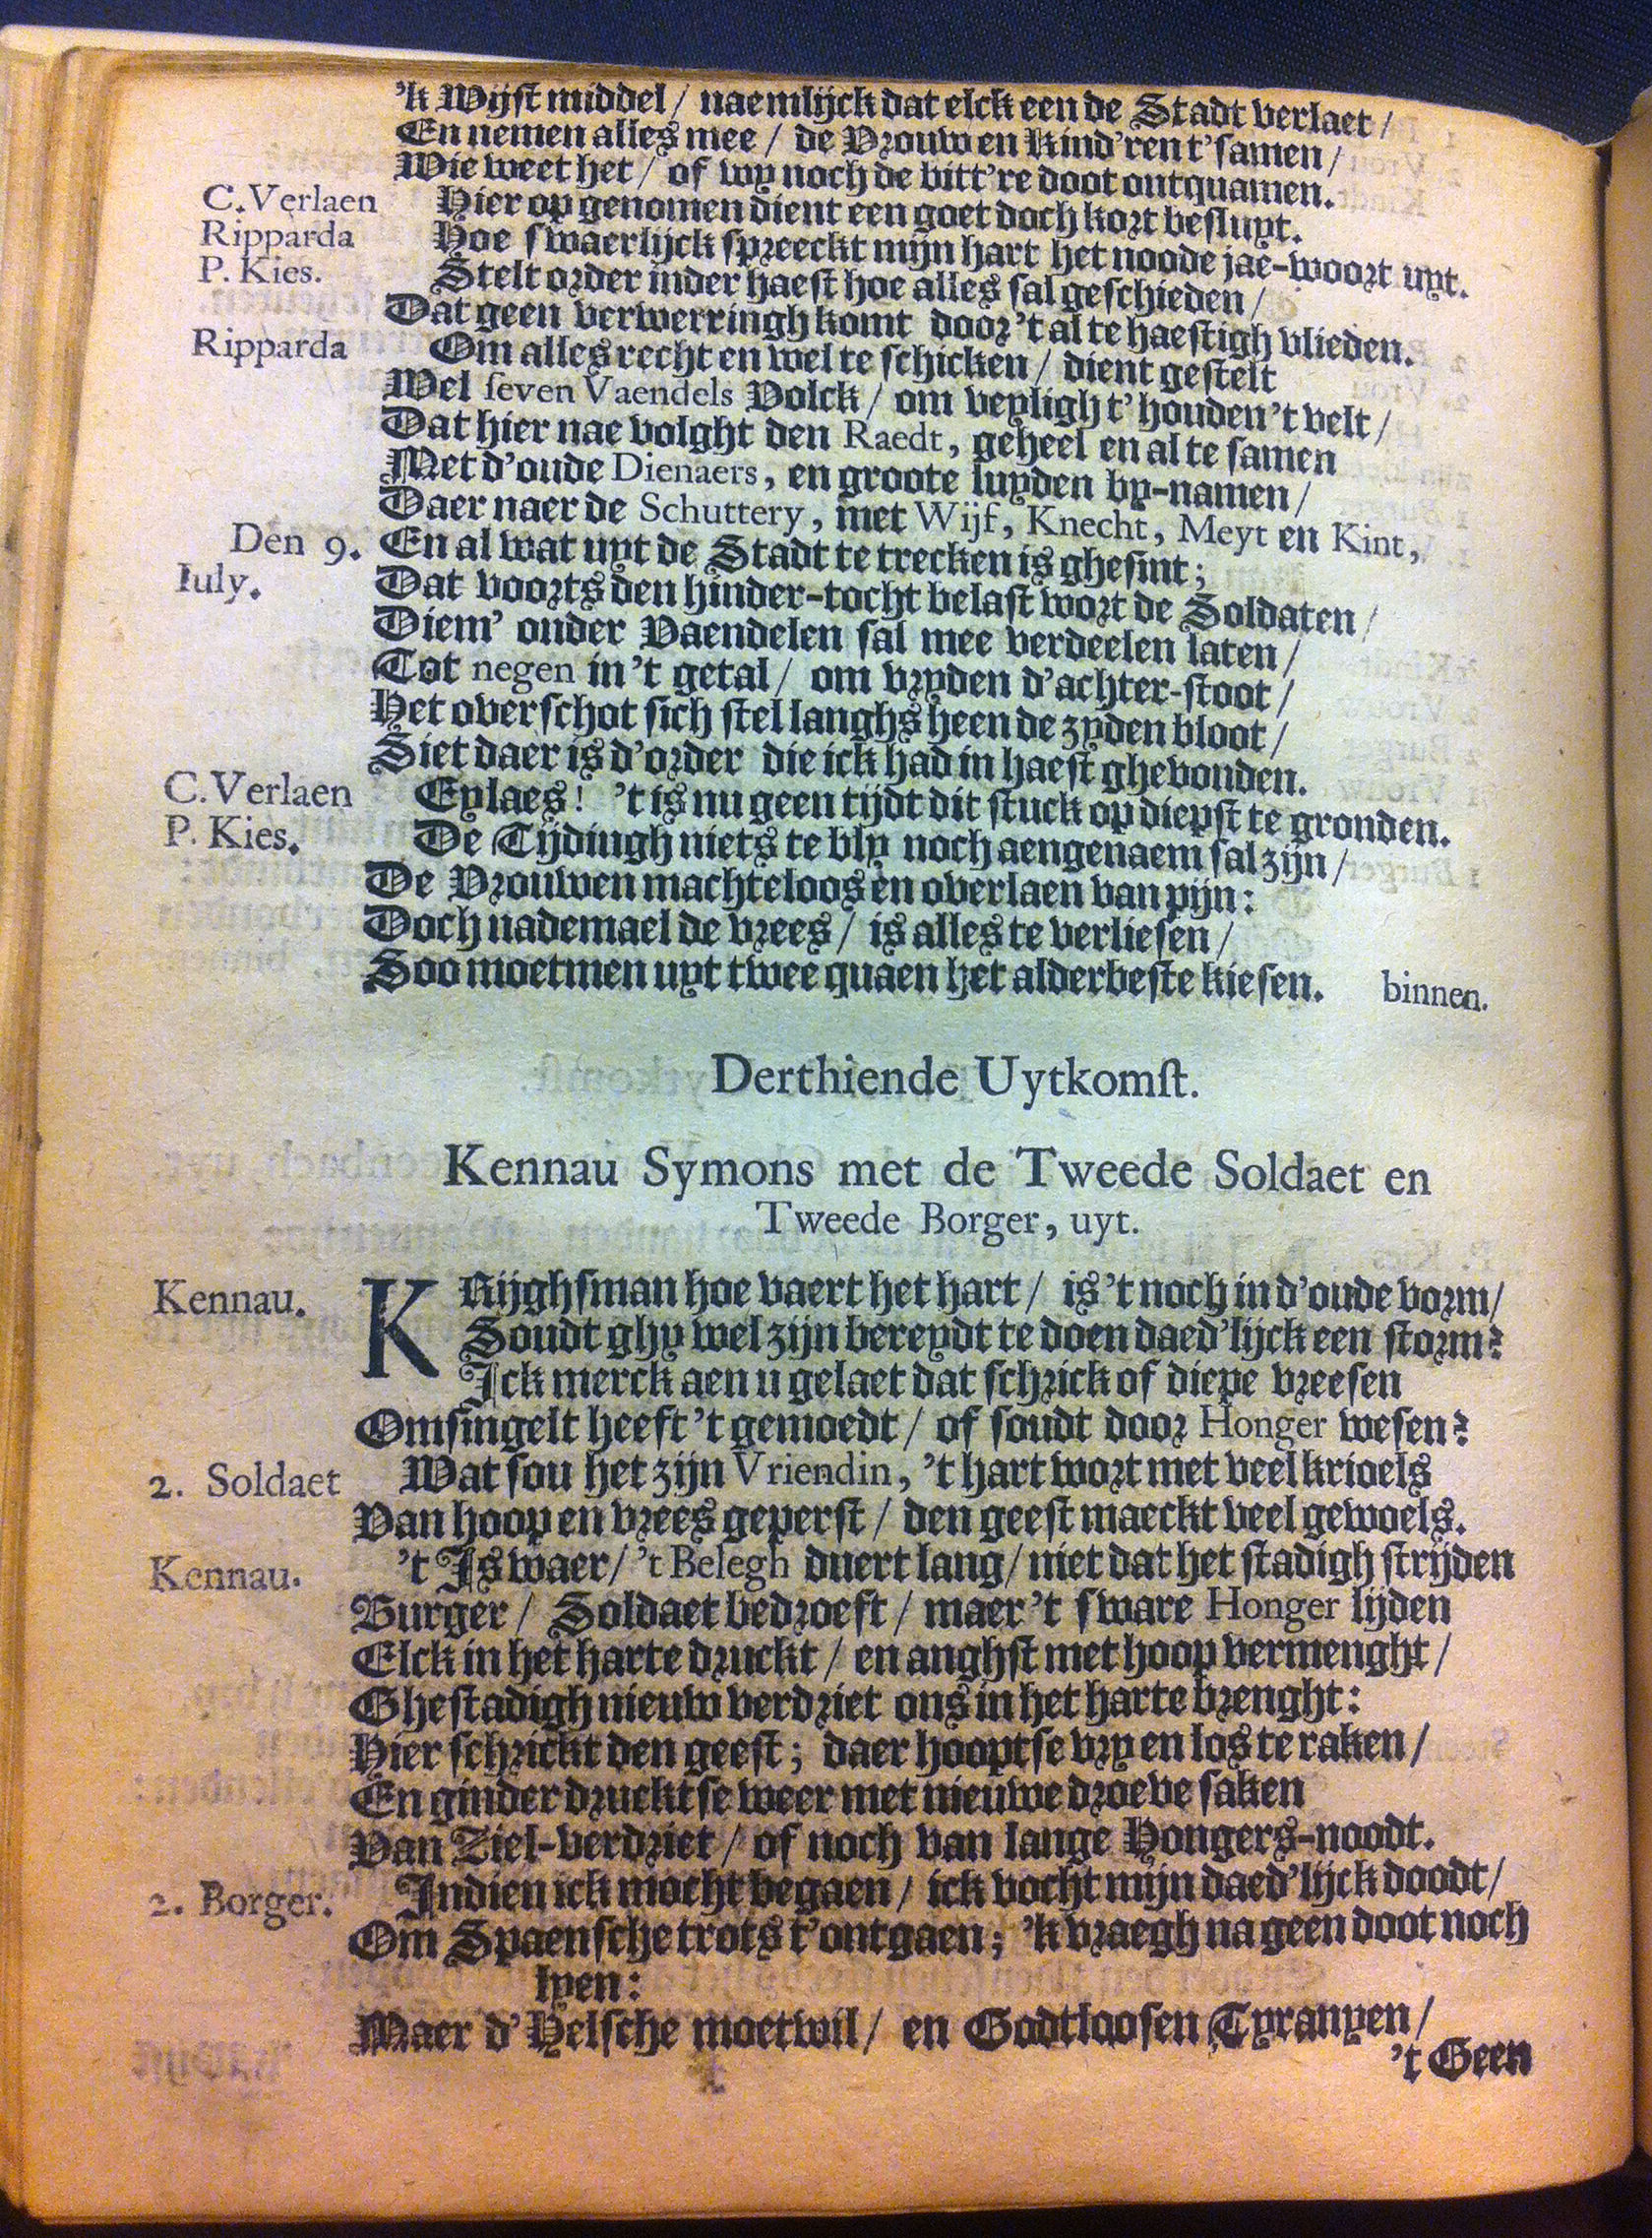 'k Wijst middel / naemlijck dat elck een de Stadt verlaet /
En nemen alles mee / de Vrouw en Kind'ren t'samen /
Wie weet het / of wy noch de bitt're doot ontquamen.
C. Verlaen Hier op genomen dient een goet doch kort besluyt.
Ripparda Hoe swaerlijck spreeckt mijn hart het noode jae-woort uyt.
P. Kies. Stelt order inder haest hoe alles sal geschieden /
Dat geen verwerringh komt door 't al te haestigh vlieden.
Ripparda Om alles recht en wel te schicken / dient gestelt
Wel seven Vaendels Volck / om veyligh t'houden 't velt /
Dat hier nae volght den Raedt, geheel en al te samen
Met d'oude Dienaers, en groote luyden by-namen /
Daer naer de Schuttery, met Wijf, Knecht, Meyt en Kint,
Den 9. En al wat uyt de Stadt te trecken is ghesint;
Iuly. Dat voorts den hinder-tocht belast wort de Soldaten /
Diem' onder Vaendelen sal mee verdeelen laten /
Tot negen in 't getal / om vryden d'achter-stoot /
Het overschot sich stel langhs heen de zyden bloot /
Siet daer is d'order die ick had in haest ghevonden.
C. Verlaen Eylaes! 't is nu geen tijdt dit stuck op diepst te gronden.
P. Kies. De Tijdingh niets te bly noch aengenaem sal zijn /
De Vrouwen machteloos en overlaen van pijn:
Doch nademael de vrees / is alles te verliesen /
Soo moetmen uyt twee quaen het alderbeste kiesen. binnen.
Derthiende Uytkomst.
Kennau Symons met de Tweede Soldaet en
Tweede Borger, uyt.
Kennau. KRijghsman hoe vaert het hart / is 't noch in d'oude vorm /
Soudt ghy wel zijn bereydt te doen daed'lijck een storm?
Ick merck aen u gelaet dat schrick of diepe vreesen
Omsingelt heeft 't gemoedt / of soudt door Honger wesen?
2. Soldaet Wat sou het zijn Vriendin, 't hart wort met veel krioels
Van hoop en vrees geperst / den geest maeckt veel gewoels.
Kennau. 't Is waer / 't Belegh duert lang / niet dat het stadigh strijden
Burger / Soldaet bedroeft / maer 't sware Honger lijden
Elck in het harte druckt / en anghst met hoop vermenght /
Ghestadigh nieuw verdriet ons in het harte brenght:
Hier schrickt den geest; daer hooptse vry en los te raken /
En ginder drucktse weer met nieuwe droeve saken
Van Ziel-verdriet / of noch van lange Hongers-noodt.
2. Borger. Indien ick mocht begaen / ick vocht mijn daed'lijck doodt /
Om Spaensche trots t'ontgaen; 'k vraegh na geen doot noch
lyen:
Maer d'Helsche moetwil / en Godtloosen Tyranyen /
't Geen